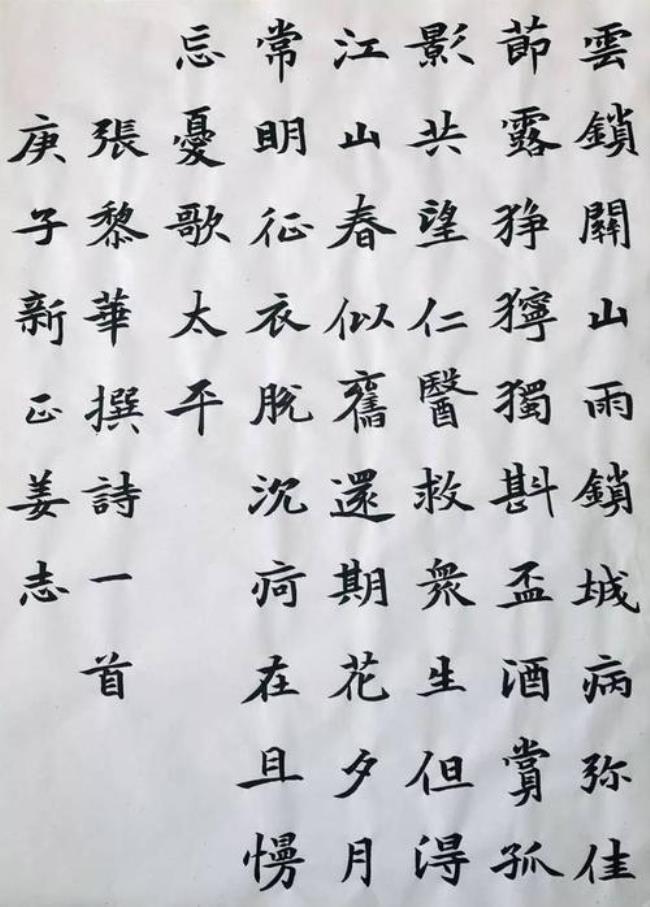 雲鎖關山雨鎖城病弥佳
節露猙獰獨斟盃酒賞孤
影共望仁醫救衆生但淂
江山春似舊還期花夕月
常明征衣脫沉疴在且慢
忘憂歌太平
張黎華撰詩一首
庚子新正姜志